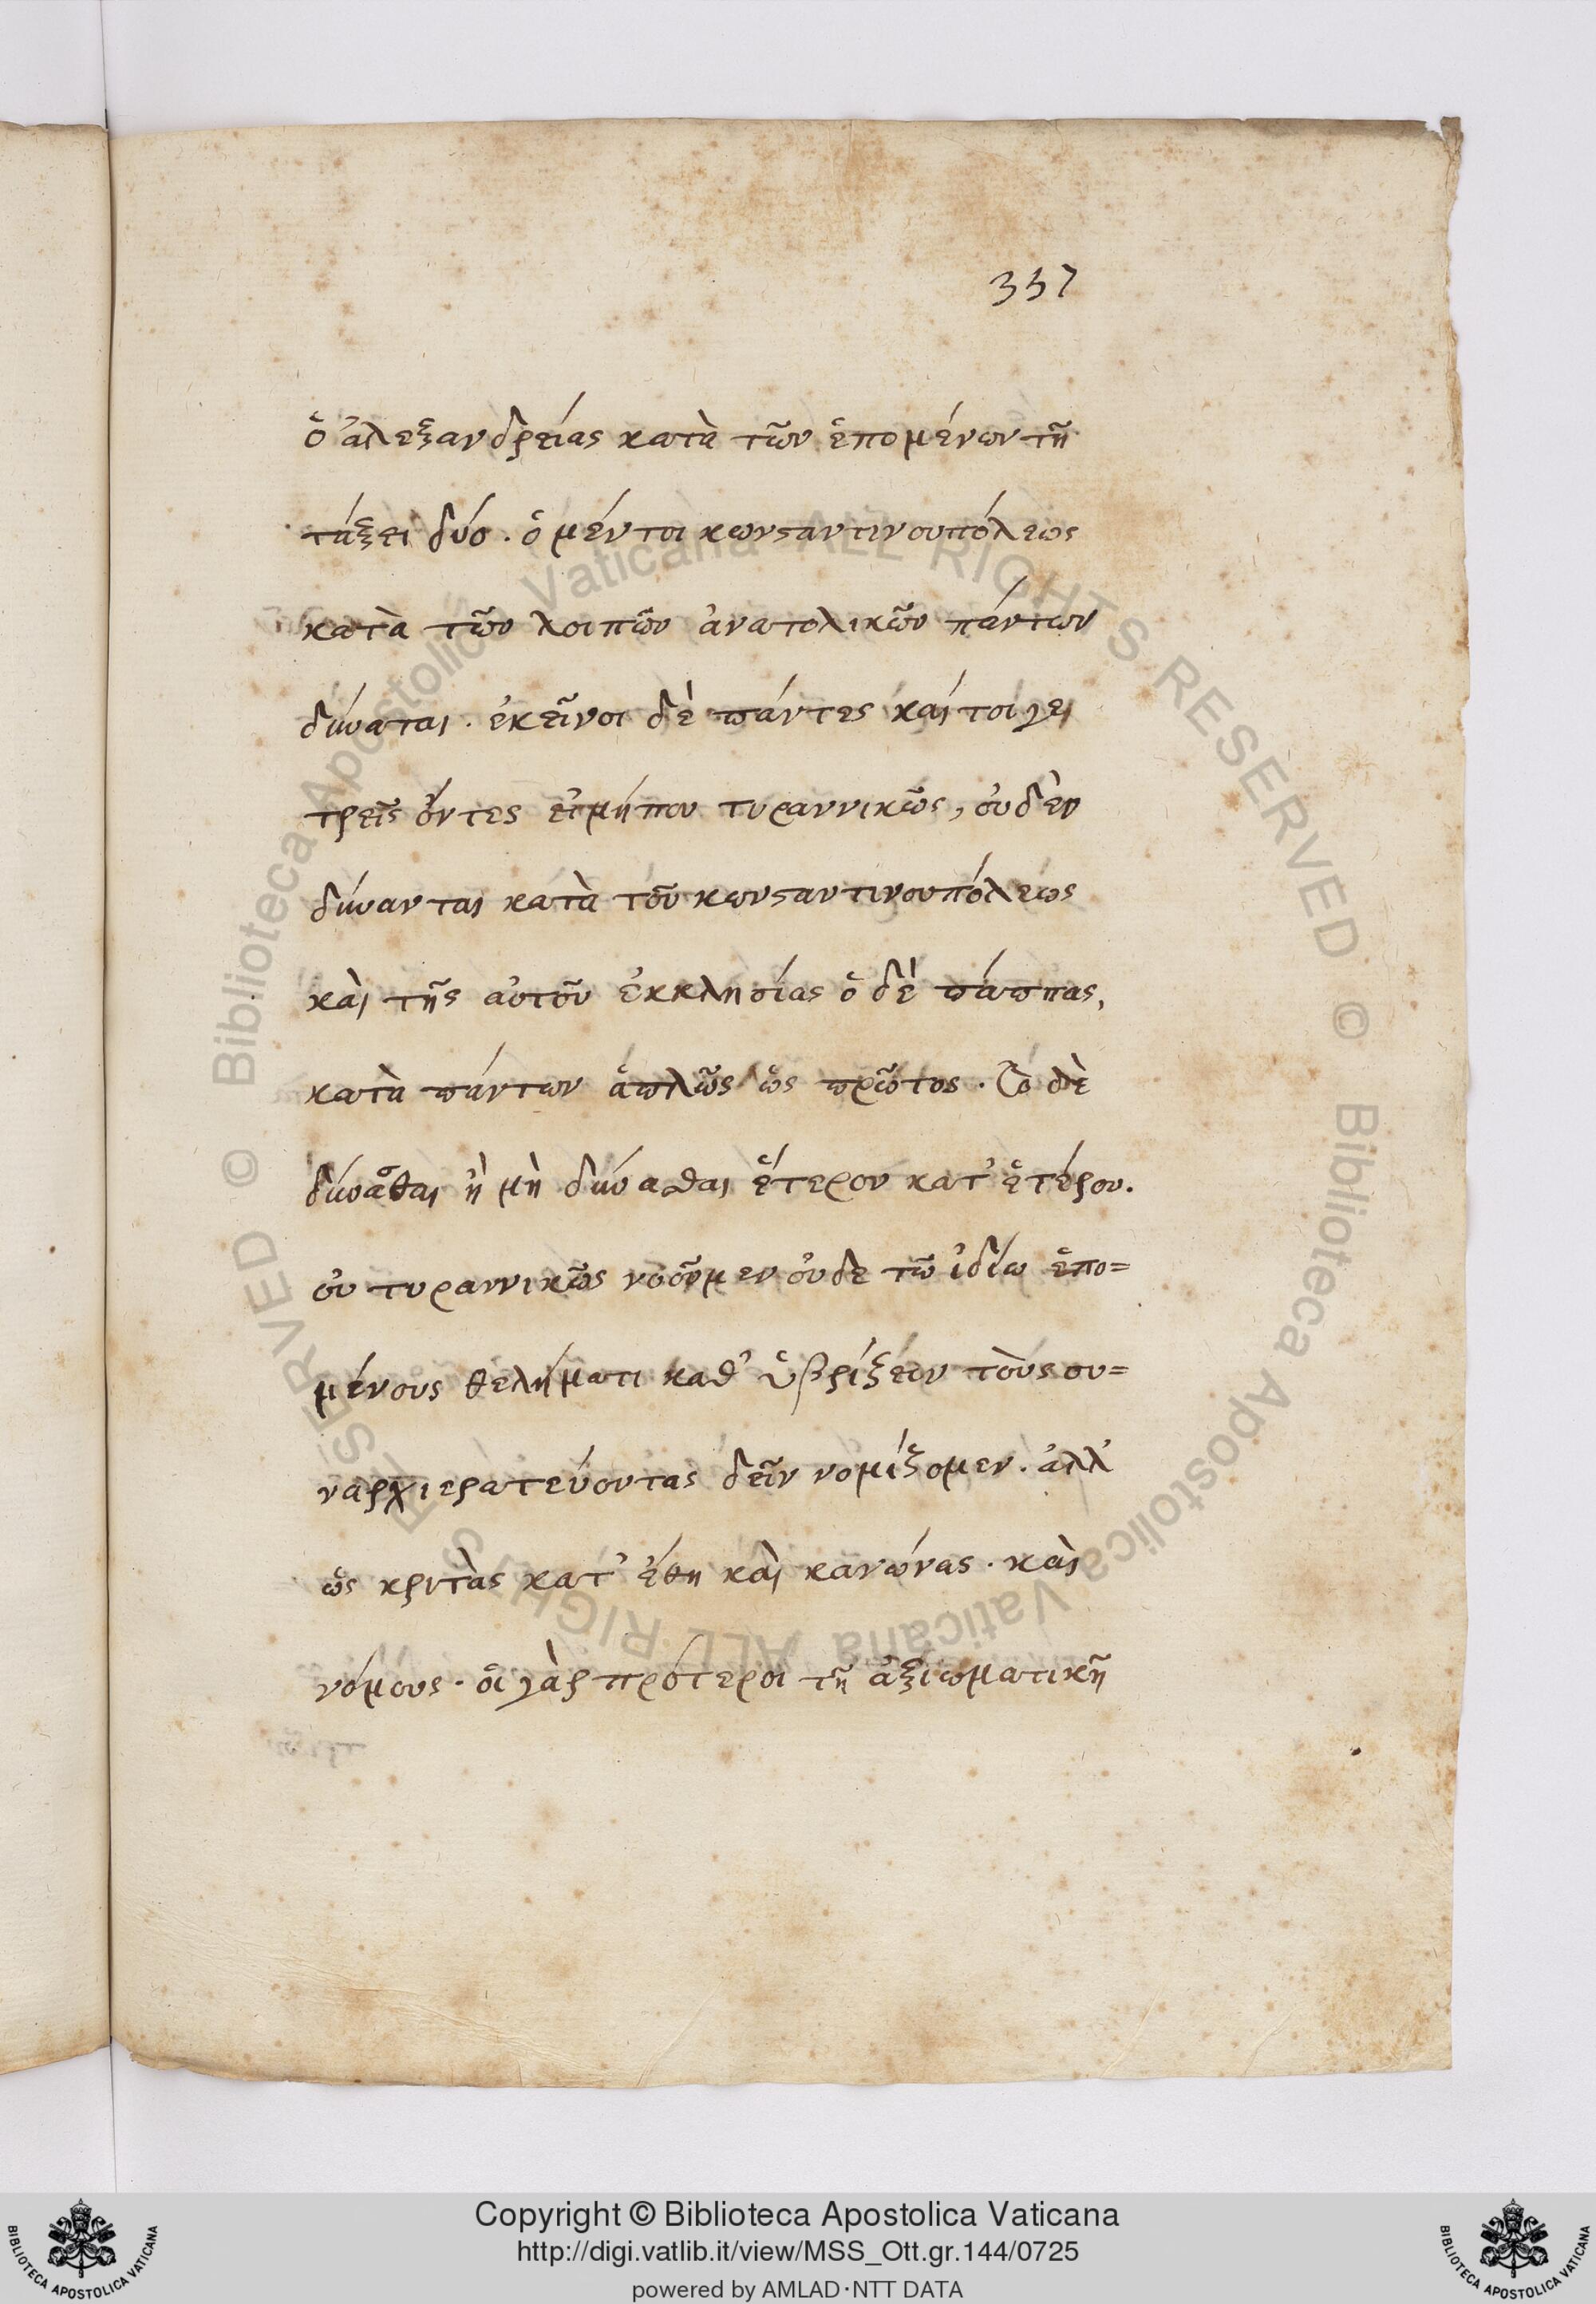 337
ὁ ἀλεξανδρείας κατὰ τῶν ἑπομένων τῇ
τάξει δύο. ὁ μέντοι κωνςαντινουπόλεως
κατὰ τῶν λοιπῶν ἀνατολικῶν πάντων
δύναται. ἐκεῖνοι δὲ πάντες καίτοιγει
τρεῖς ὄντες εἰμήπου τυραννικῶς, οὐδὲν
δύνανται κατὰ τοῦ κωνςαντινουπόλεως
καὶ τῆς αὐτοῦ ἐκκλησίας ὁ δὲ πάππας,
κατὰ πάντων ἁπλῶς ὡς πρῶτος. Τὸ δὲ
δύνασθαι ἢ μὴ δύνασθαι ἕτερον κατ' ἑτέρου.
οὐ τυραννικῶς νοοῦμεν οὐδε τῶ ἰδίω ἑπο=
μένους θελήματι καθ' ὑβρίζειν τοὺς συ=
ναρχιερατεύοντας δεῖν νομίζομεν. ἀλλ'
ὡς κριτὰς κατ' ἔθη καὶ κανώνας. καὶ
νόμους. οἱ γὰρ πρότεροι τῇ ἀξιωματικῇ
Copyright © Biblioteca Apostolica Vaticana
http://digi.vatlib.it/view/MSS_Ott.gr.144/0725
powered by AMLAD·NTT DATA
BIBLIOTECA APOSTOLICA VATICANA
BIBLIOTECA APOSTOLICA VATICANA
© Biblioteca Apostolica Vaticana ALL RIGHTS RESERVED © Biblioteca Apostolica Vaticana ALL RIGHTS RESERVED